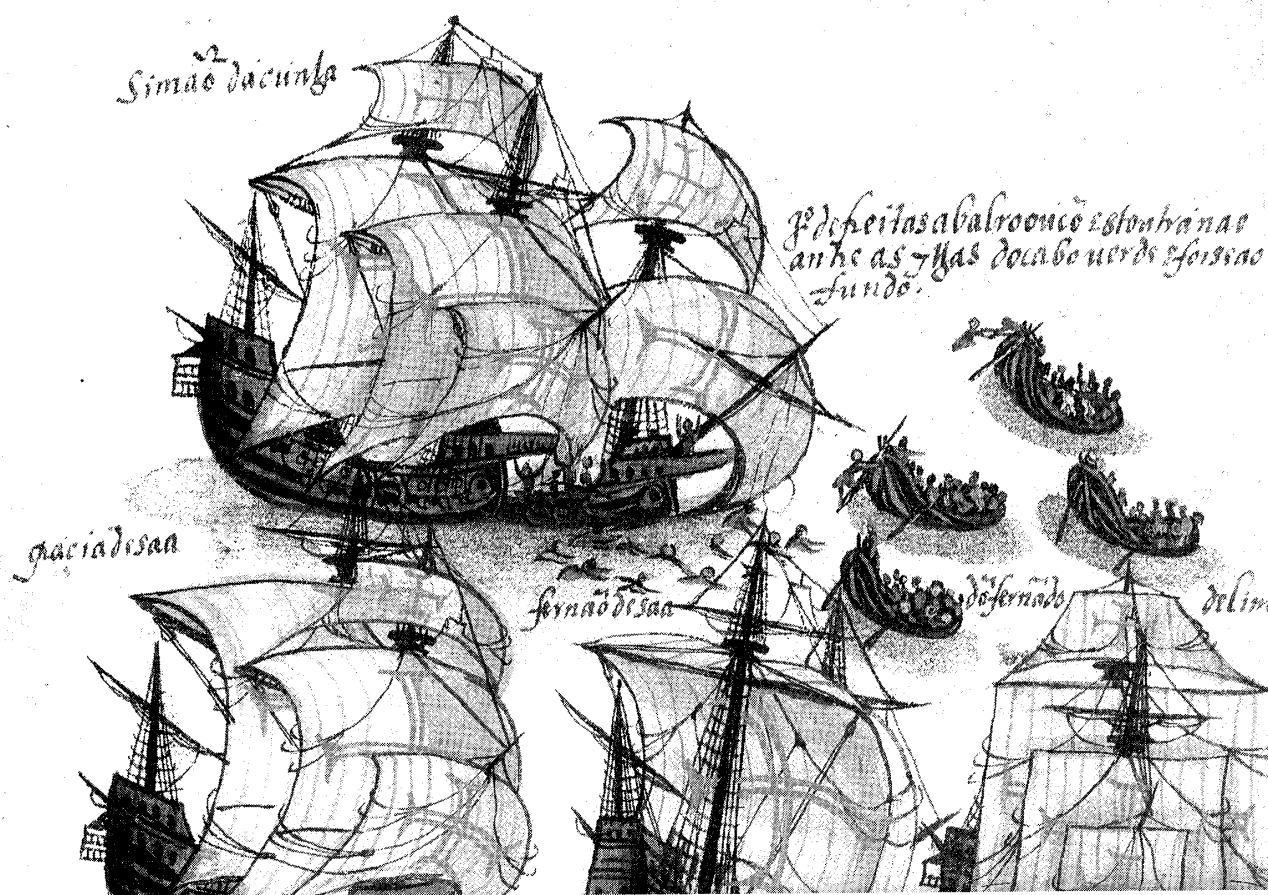 Simaõ dacunha
Po defreitas abalrooucõ Estoutranao
antre as ylhas docabo uerde Eforseao
fundo.
graciadesaa
fernaõdesaa
dõfernãdo
delim